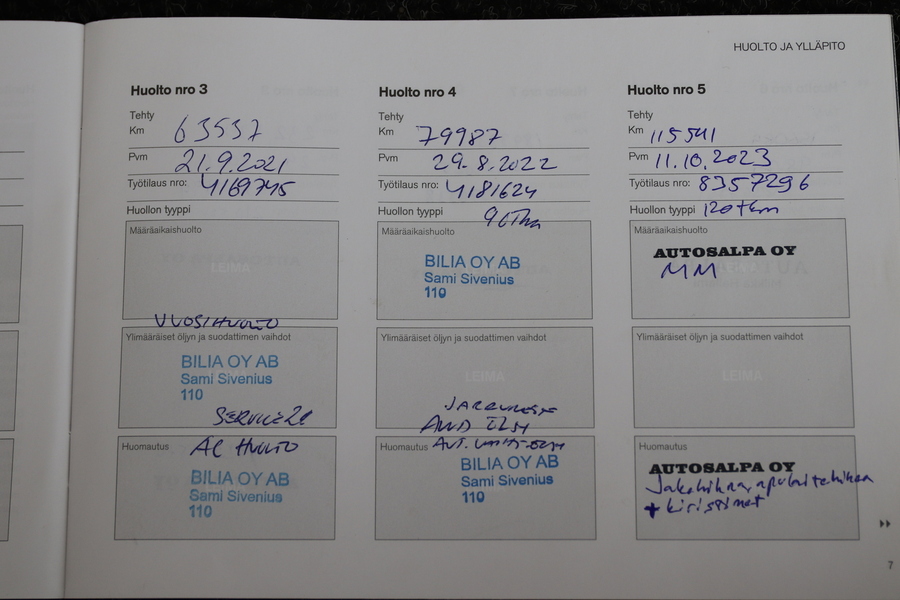 HUOLTO JA YLLÄPITO
Huolto nro 3
Tehty
Km 63537
Pvm 21.9.2021
Työtilaus nro: 4169745
Huollon tyyppi
Määräaikaishuolto
LEIMA
VUOSIHUOLTO
Ylimääräiset öljyn ja suodattimen vaihdot
BILIA OY AB
Sami Sivenius
110
Huomautus AC HUOLTO
BILIA OY AB
Sami Sivenius
110
Huolto nro 4
Tehty
Km 79987
Pvm 29.8.2022
Työtilaus nro: 4181624
Huollon tyyppi
Määräaikaishuolto
BILIA OY AB
Sami Sivenius
110
Ylimääräiset öljyn ja suodattimen vaihdot
LEIMA
JARRUNESTE
Huomautus
BILIA OY AB
Sami Sivenius
110
Huolto nro 5
Tehty
Km 115541
Pvm 11.10.2023
Työtilaus nro: 8357296
Huollon tyyppi 120tkm
Määräaikaishuolto
AUTOSALPA OY
MM
Ylimääräiset öljyn ja suodattimen vaihdot
LEIMA
Huomautus
AUTOSALPA OY
Jakohihna, apulaitehihna
+ kiristimet
7